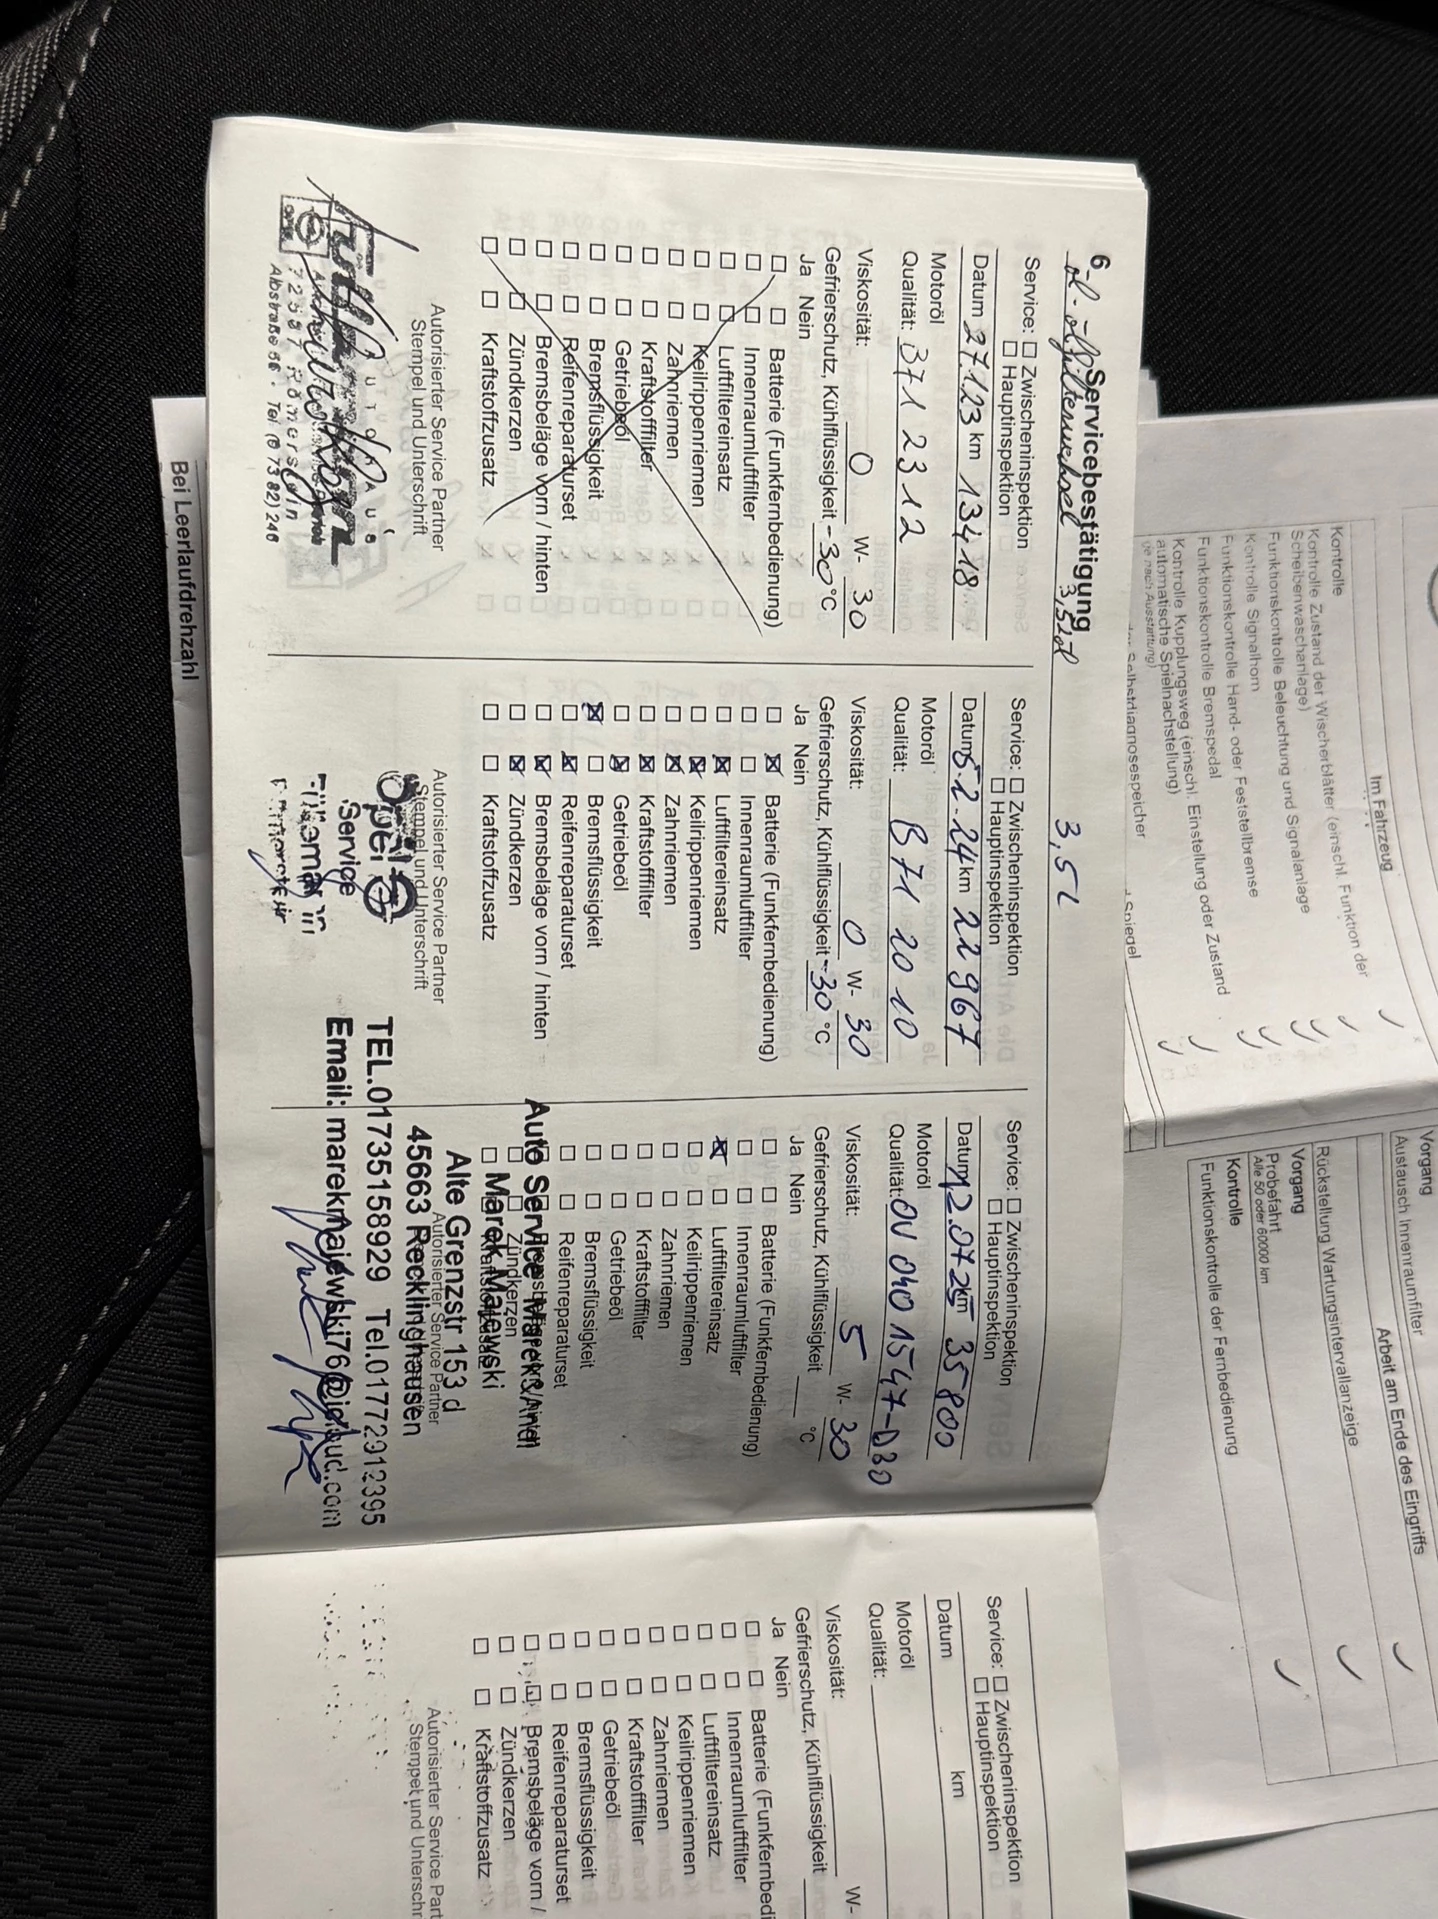 6 Servicebestätigung
öl-ölfilterwechsel 3,5l
Service: Zwischeninspektion
Hauptinspektion
Datum 27.1.23 km 13418
Motoröl
Qualität: B71 2312
Viskosität: 0 W- 30
Gefrierschutz, Kühlflüssigkeit -30°C
Ja Nein
Batterie (Funkfernbedienung)
Innenraumluftfilter
Luftfiltereinsatz
Keilrippenriemen
Zahnriemen
Kraftstofffilter
Getriebeöl
Bremsflüssigkeit
Reifenreparaturset
Bremsbeläge vorn / hinten
Zündkerzen
Kraftstoffzusatz
Autorisierter Service Partner
Stempel und Unterschrift
Autohaus
Tel (07382) 246
3,5L
Service: Zwischeninspektion
Hauptinspektion
Datum 5.2.24 km 22967
Motoröl
Qualität: B71 2010
Viskosität: 0 W- 30
Gefrierschutz, Kühlflüssigkeit -30 °C
Ja Nein
Batterie (Funkfernbedienung)
Innenraumluftfilter
Luftfiltereinsatz
Keilrippenriemen
Zahnriemen
Kraftstofffilter
Getriebeöl
Bremsflüssigkeit
Reifenreparaturset
Bremsbeläge vorn / hinten
Zündkerzen
Kraftstoffzusatz
Autorisierter Service Partner
Stempel und Unterschrift
Opel
Service
Service: Zwischeninspektion
Hauptinspektion
Datum 12.07.25 km 35800
Motoröl
Qualität: OV 040 1547-D30
Viskosität: 5 W- 30
Gefrierschutz, Kühlflüssigkeit °C
Ja Nein
Batterie (Funkfernbedienung)
Innenraumluftfilter
Luftfiltereinsatz
Keilrippenriemen
Zahnriemen
Kraftstofffilter
Getriebeöl
Bremsflüssigkeit
Reifenreparaturset
Zündkerzen
Autorisierter Service Partner
Auto Service Marek
Marek Majewski
Alte Grenzstr 153 d
45663 Recklinghausen
TEL.01735158929 Tel.01772912395
Email: marekmajewski76@icloud.com
Service: Zwischeninspektion
Hauptinspektion
Datum km
Motoröl
Qualität:
Viskosität: W-
Gefrierschutz, Kühlflüssigkeit
Ja Nein
Batterie (Funkfernbedi
Innenraumluftfilter
Luftfiltereinsatz
Keilrippenriemen
Zahnriemen
Kraftstofffilter
Getriebeöl
Bremsflüssigkeit
Reifenreparaturset
Bremsbeläge vorn /
Zündkerzen
Kraftstoffzusatz
Autorisierter Service Part
Stempel und Unterschr
Bei Leerlaufdrehzahl
Im Fahrzeug
Kontrolle
Kontrolle Zustand der Wischerblätter (einschl. Funktion der
Scheibenwaschanlage)
Funktionskontrolle Beleuchtung und Signalanlage
Kontrolle Signalhorn
Funktionskontrolle Hand- oder Feststellbremse
Funktionskontrolle Bremspedal
Kontrolle Kupplungsweg (einschl. Einstellung oder Zustand
automatische Spielnachstellung)
(je nach Ausstattung)
Selbstdiagnosespeicher
Spiegel
Vorgang
Austausch Innenraumfilter
Arbeit am Ende des Eingriffs
Rückstellung Wartungsintervallanzeige
Vorgang
Probefahrt
Alle 50 oder 60000 km
Kontrolle
Funktionskontrolle der Fernbedienung